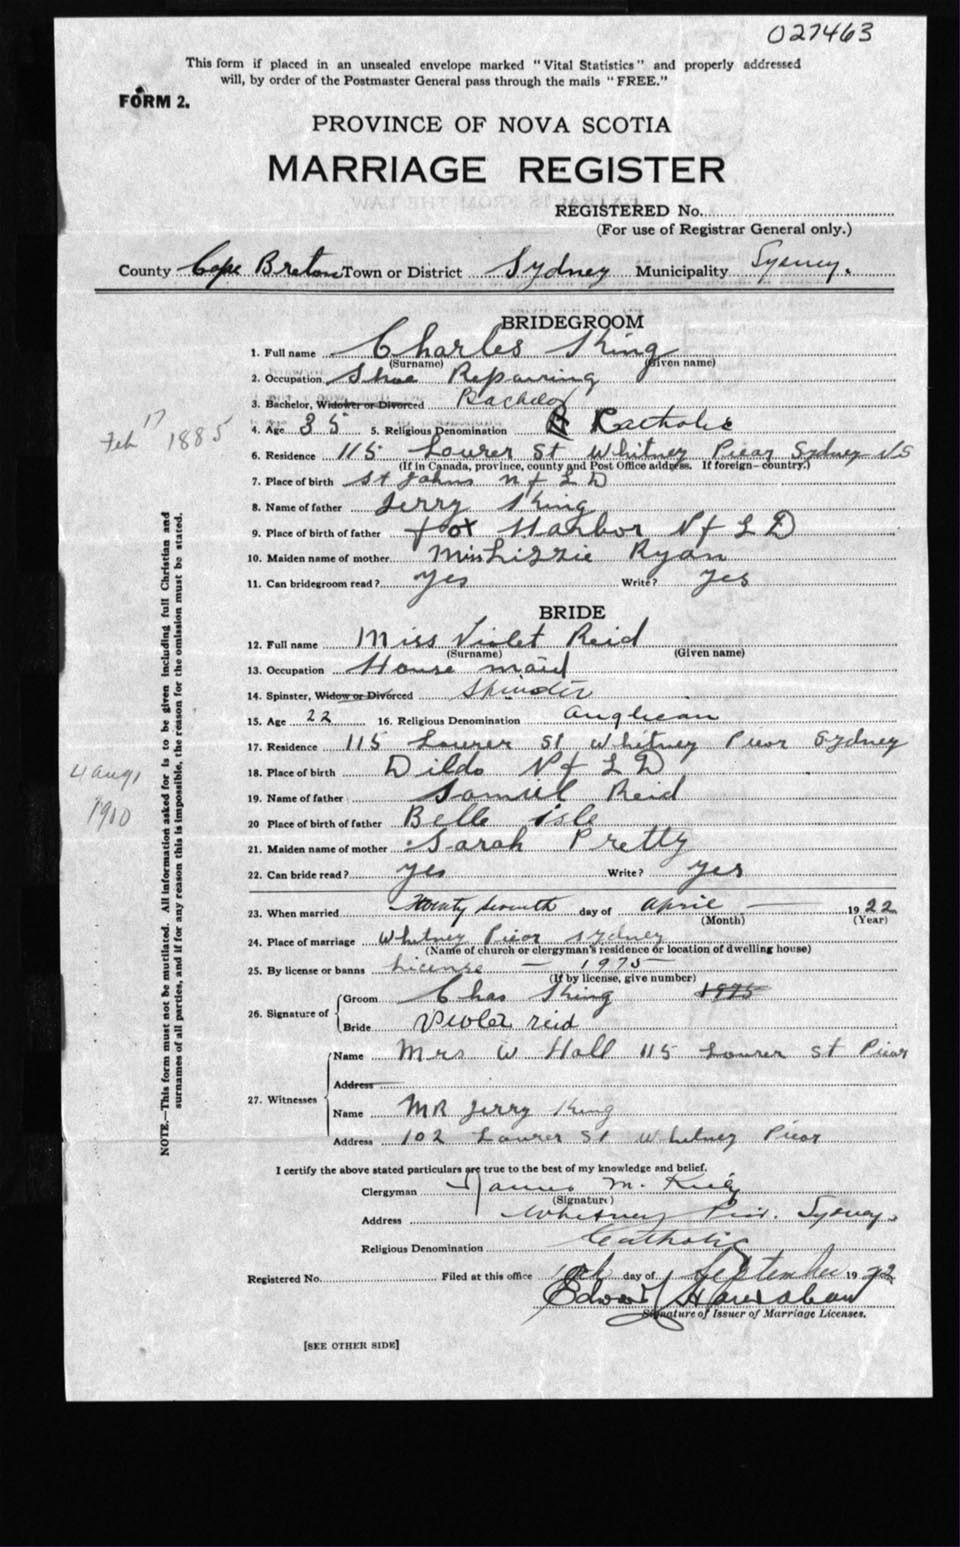 027463
This form if placed in an unsealed envelope marked "Vital Statistics" and properly addressed
will, by order of the Postmaster General pass through the mails "FREE."
FORM 2.
PROVINCE OF NOVA SCOTIA
MARRIAGE REGISTER
REGISTERED No.
(For use of Registrar General only.)
County Cape Breton Town or District Sydney Municipality Sydney.
BRIDEGROOM
1. Full name Charles King
(Surname) (Given name)
2. Occupation Shoe Repairing
3. Bachelor, Widower or Divorced Bachelor
4. Age 35 5. Religious Denomination Catholic
Feb 17 1885
6. Residence 115 Lourer St Whitney Piear Sydney NS
(If in Canada, province, county and Post Office address. If foreign—country.)
7. Place of birth St Johns NfLD
8. Name of father Jerry King
9. Place of birth of father fox Harbor NfLD
10. Maiden name of mother Miss Lizzie Ryan
11. Can bridegroom read? yes Write? yes
BRIDE
12. Full name Miss Violet Reid
(Surname) (Given name)
13. Occupation House maid
14. Spinster, Widow or Divorced
15. Age 22 16. Religious Denomination Anglican
17. Residence 115 Lourer St Whitney Piear Sydney
18. Place of birth Dildo NfLD
4 Aug, 1900
19. Name of father Samuel Reid
20 Place of birth of father Belle isle
21. Maiden name of mother Sarah Pretty
22. Can bride read? yes Write? yes
23. When married Twenty seventh day of April 1922
(Month) (Year)
24. Place of marriage Whitney Piear Sydney
(Name of church or clergyman's residence or location of dwelling house)
25. By license or banns License — 1975
(If by license, give number)
26. Signature of Groom Chas King 1975
Bride Violet reid
27. Witnesses Name Mrs W Hall 115 Lourer St Piear
Address
Name MR Jerry King
Address 102 Lourer St Whitney Piear
I certify the above stated particulars are true to the best of my knowledge and belief.
Clergyman M.
(Signature)
Address Whitney Pier. Sydney.
Religious Denomination Catholic
Registered No. Filed at this office day of September 1922
Edward
Signature of Issuer of Marriage Licenses.
[SEE OTHER SIDE]
NOTE.—This form must not be mutilated. All information asked for is to be given including full Christian and
surnames of all parties, and if for any reason this is impossible, the reason for the omission must be stated.